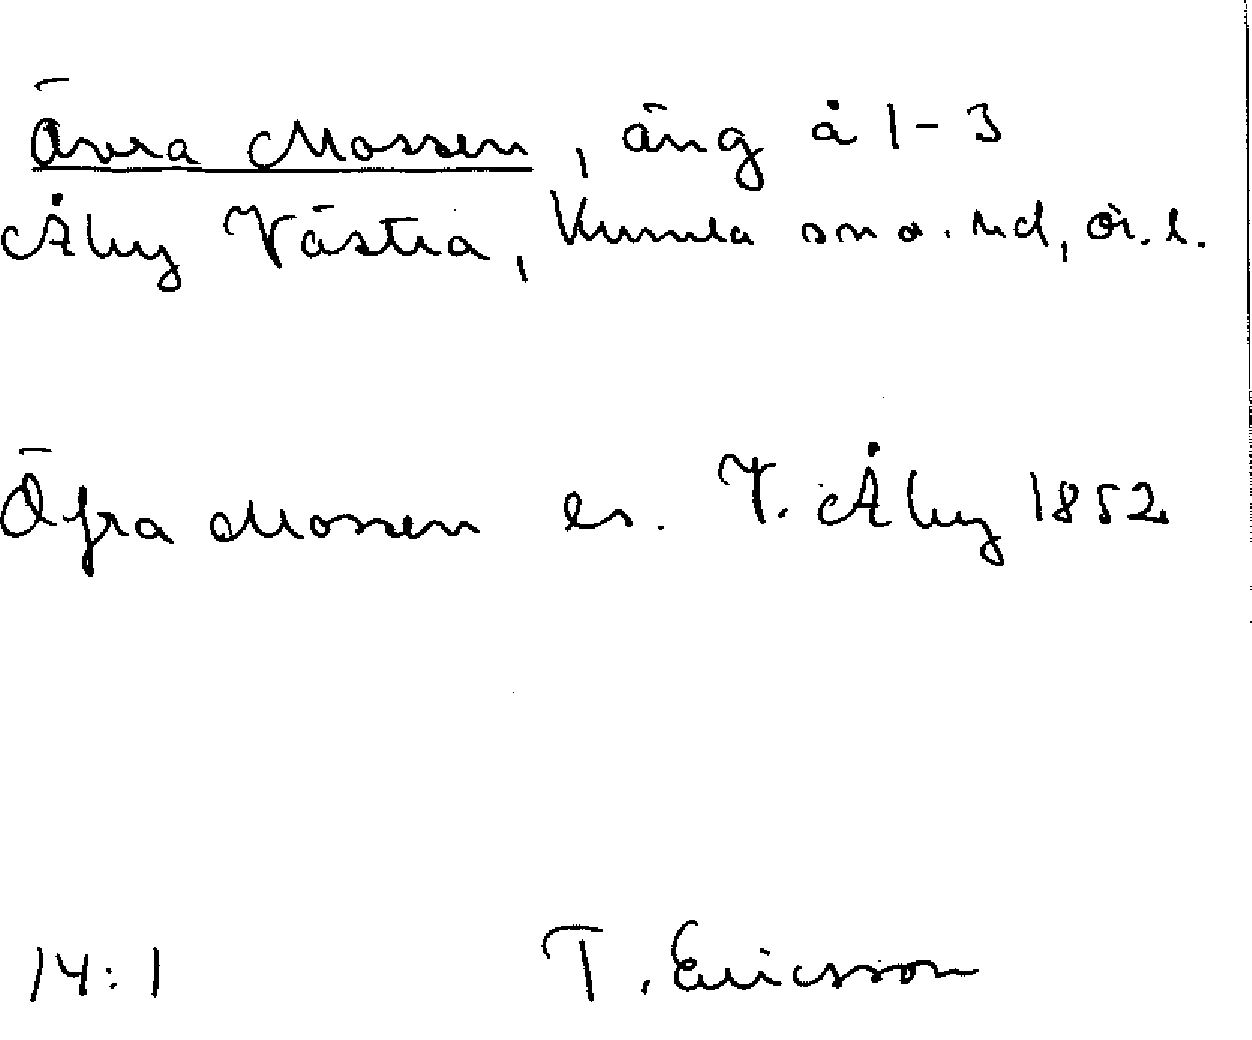 Övra Mossen, äng å 1-3
Åby Västra, Kumla sn o. hd, ör. l.
Öfra Mossen es. V. Åby 1852
14:1 T. Ericsson